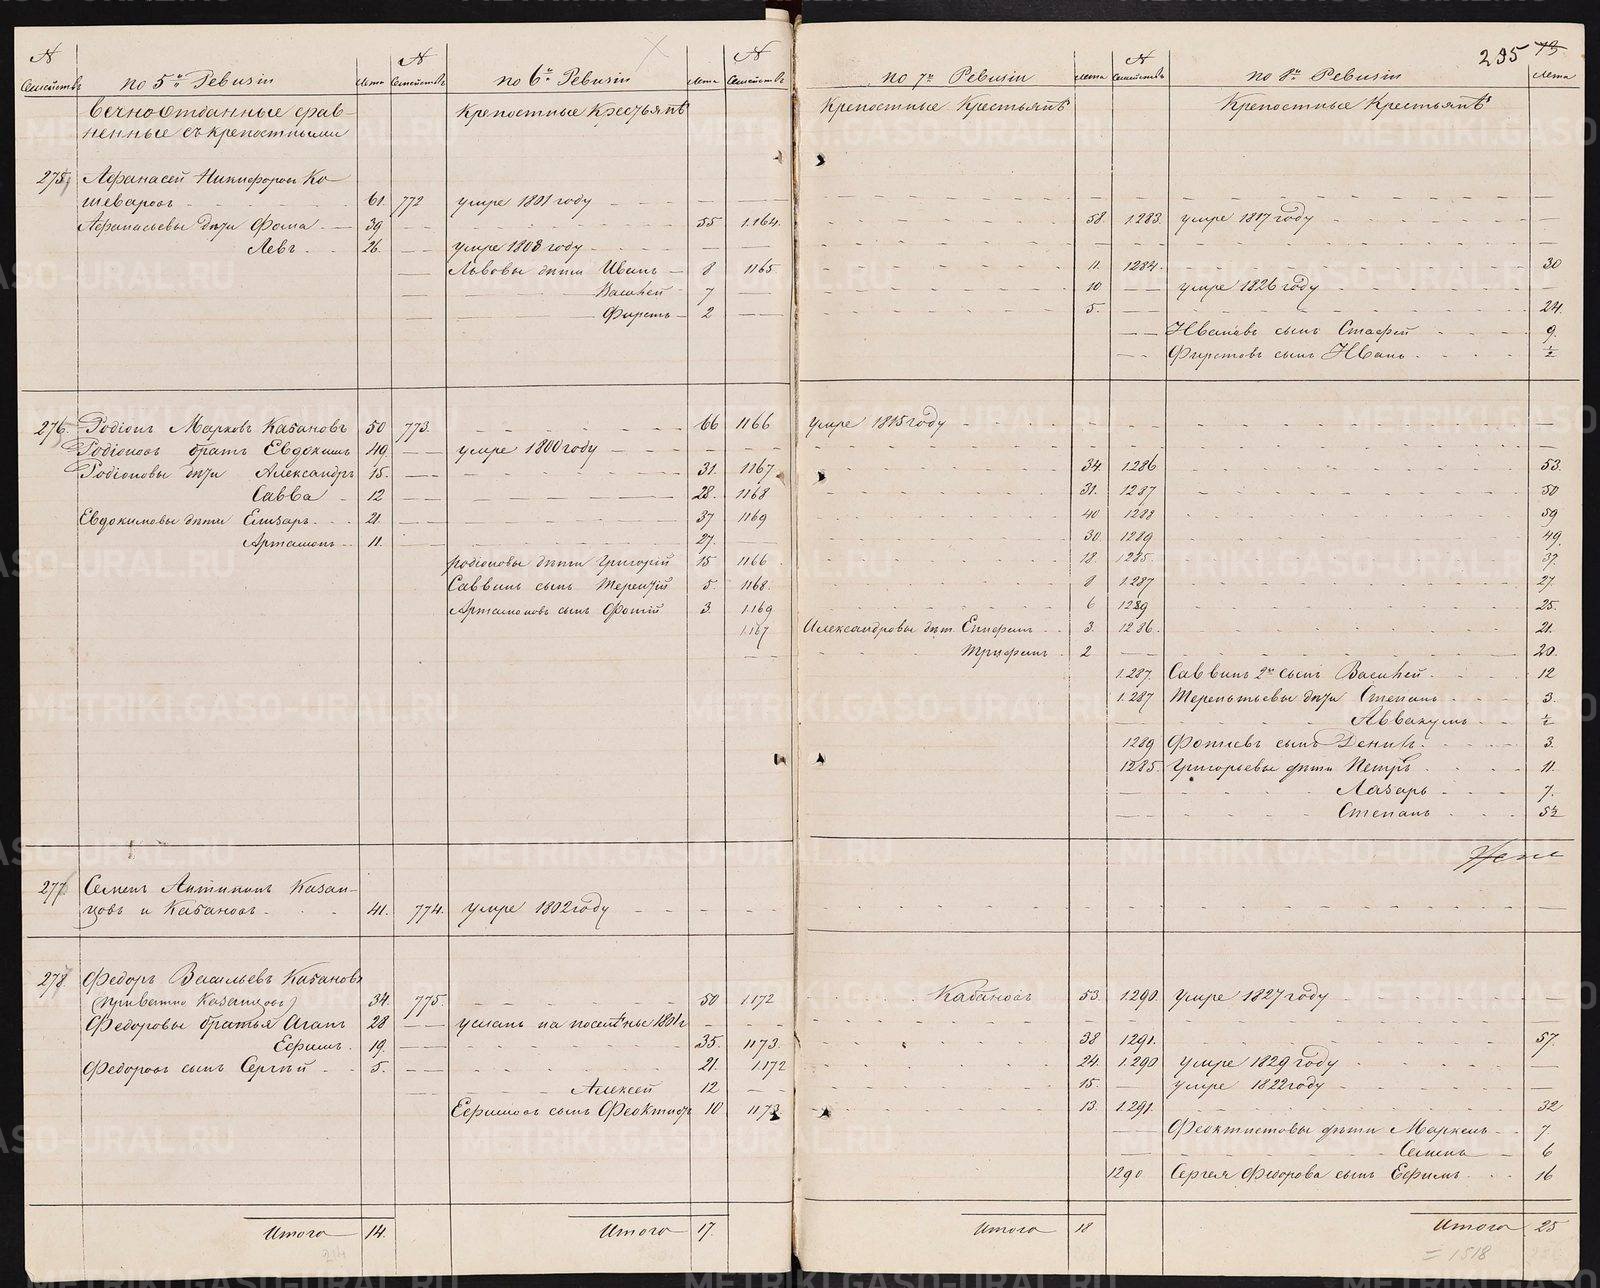 295 73
N семействъ | по 5й Ревизіи | лѣта | N семействъ | по 6й Ревизіи | лѣта | N семействъ | по 7й Ревизіи | лѣта | N семействъ | по 8й Ревизіи | лѣта
Вечноотданные срав- | Крепостные Крестьянѣ | Крепостные Крестьянѣ | Крепостные Крестьянѣ
ненные съ крепостными
275 Афанасей Никифоровъ Ко-
шеваровъ 61. 772 умре 1801 году
Афанасьевы дѣти Фома 39 55 1164. 58. 1283. умре 1817 году
Левъ 26. умре 1808 году
Львовы дѣти Иванъ 8 1165 11. 1284. 30
Василей 7 10 умре 1826 году
Фирстъ 2 5. 24.
Ивановъ сынъ Стафей 9.
Фирстовъ сынъ Иванъ ½
276. Родіонъ Марковъ Кабановъ 50 773. 66 1166 умре 1815 году
Родіоновъ братъ Евдокимъ 49. умре 1800 году
Родіоновы дѣти Александръ 15. 31. 1167 34. 1286 53.
Савва 12 28. 1168 31. 1287 50
Евдокимовы дѣти Елизаръ 21. 37 1169 40 1288 59
Артамонъ 11. 27. 30. 1289 49.
Родіоновы дѣти Григорій 15 1166 18. 1285. 37.
Саввинъ сынъ Терентій 5. 1168. 8 1287 27.
Артамоновъ сынъ Фотій 3. 1169 6 1289 25.
1167 Александровы дѣт. Епифанъ 3. 1286. 21.
Трифанъ 2 20.
1287. Саввинъ 2й сынъ Василей 12
1287 Терентьевы дѣти Степанъ 3.
Аввакумъ ½
1289 Фотіевъ сынъ Денисъ 3.
1285. Григорьевы дѣти Петръ 11.
Лазарь 7.
Степанъ 5½
277 Семенъ Антиповъ Казан-
цовъ и Кабановъ 41. 774. умре 1802 году
278. Федоръ Васильевъ Кабановъ
(приватно Казанцовъ) 34. 775. 50 1172 Кабановъ 53. 1290. умре 1827 году
Федоровы братья Агапъ 28 усланъ на поселѣнье 1801 г
Ефимъ 19. 35. 1173. 38 1291. 57.
Федоровъ сынъ Сергѣй 5. 21. 1172 24. 1290 умре 1829 году
Алексей 12 15. умре 1822 году
Ефимовъ сынъ Феоктистъ 10 1173 13. 1291. 32
Феоктистовы дѣти Маркелъ 7
Семенъ 6
1290 Сергея Федорова сынъ Ефимъ 16
Итого 14. Итого 17. Итого 18 Итого 25
= 1518
METRIKI.GASO-URAL.RU